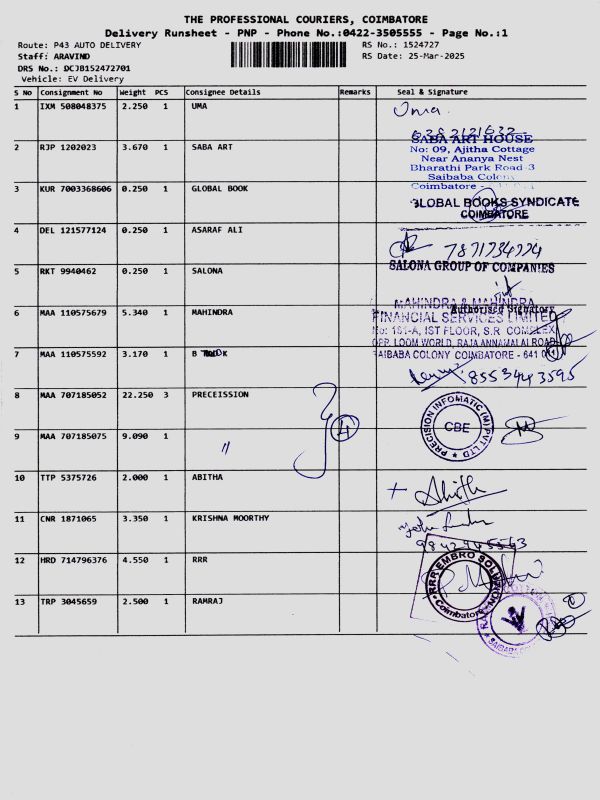 THE PROFESSIONAL COURIERS, COIMBATORE
Delivery Runsheet - PNP - Phone No.:0422-3505555 - Page No.:1
Route: P43 AUTO DELIVERY
RS No.: 1524727
Staff: ARAVIND
RS Date: 25-Mar-2025
DRS No.: DCJB152472701
Vehicle: EV Delivery
S No Consignment No Weight PCS Consignee Details Remarks Seal & Signature
1 IXM 508048375 2.250 1 UMA Uma.
6382121632
2 RJP 1202023 3.670 1 SABA ART
SABA ART HOUSE
No: 09, Ajitha Cottage
Near Ananya Nest
Bharathi Park Road-3
Saibaba Colony
Coimbatore -
3 KUR 7003368606 0.250 1 GLOBAL BOOK
GLOBAL BOOKS SYNDICATE
COIMBATORE
4 DEL 121577124 0.250 1 ASARAF ALI
7871734774
5 RKT 9940462 0.250 1 SALONA
SALONA GROUP OF COMPANIES
Authorised Signatory
6 MAA 110575679 5.340 1 MAHINDRA
MAHINDRA & MAHINDRA
FINANCIAL SERVICES LIMITED
No: 181-A, IST FLOOR, S.R. COMPLEX
OPP. LOOM WORLD, RAJA ANNAMALAI ROAD
SAIBABA COLONY COIMBATORE - 641 011
7 MAA 110575592 3.170 1 B
8553443595
8 MAA 707185052 22.250 3 PRECEISSION
4
PRECISION INFOMATIC (M) PVT LTD
CBE
9 MAA 707185075 9.090 1 "
10 TTP 5375726 2.000 1 ABITHA
11 CNR 1871065 3.350 1 KRISHNA MOORTHY
9842945563
12 HRD 714796376 4.550 1 RRR
RRR EMBRO SOLUTION
Coimbatore
13 TRP 3045659 2.500 1 RAMRAJ
SAIBABA COL